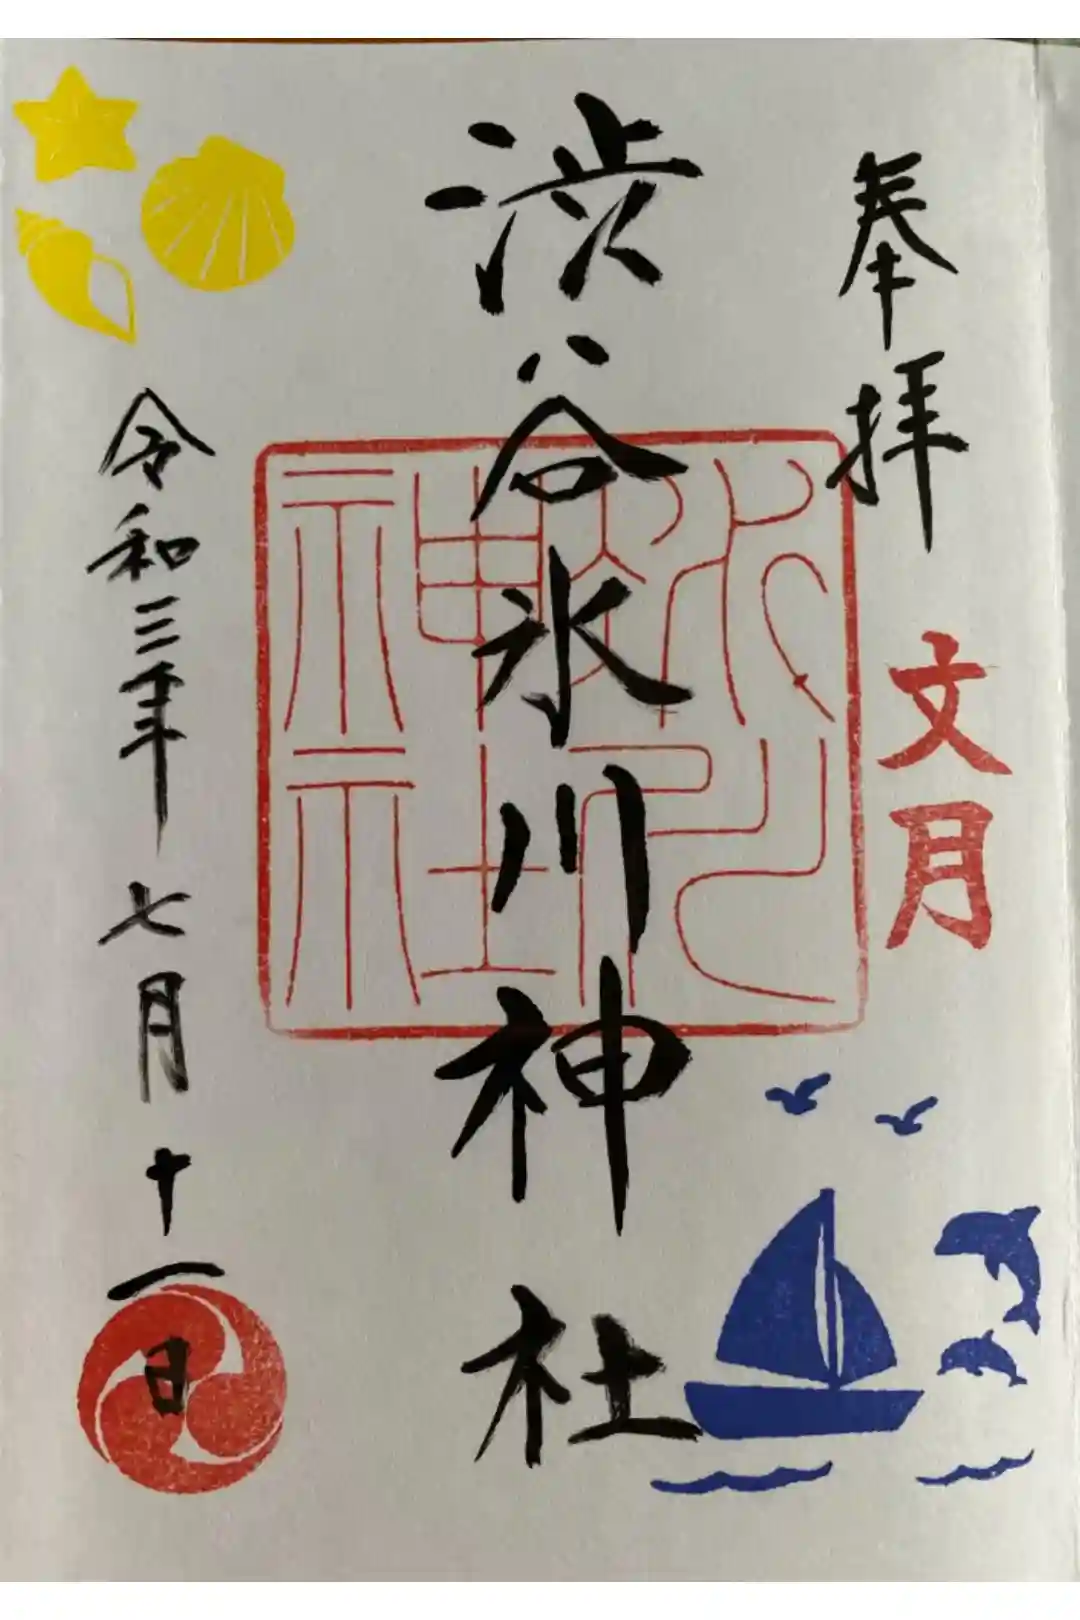 奉拝
文月
渋谷氷川神社
氷川
神社
令和三年七月十一日